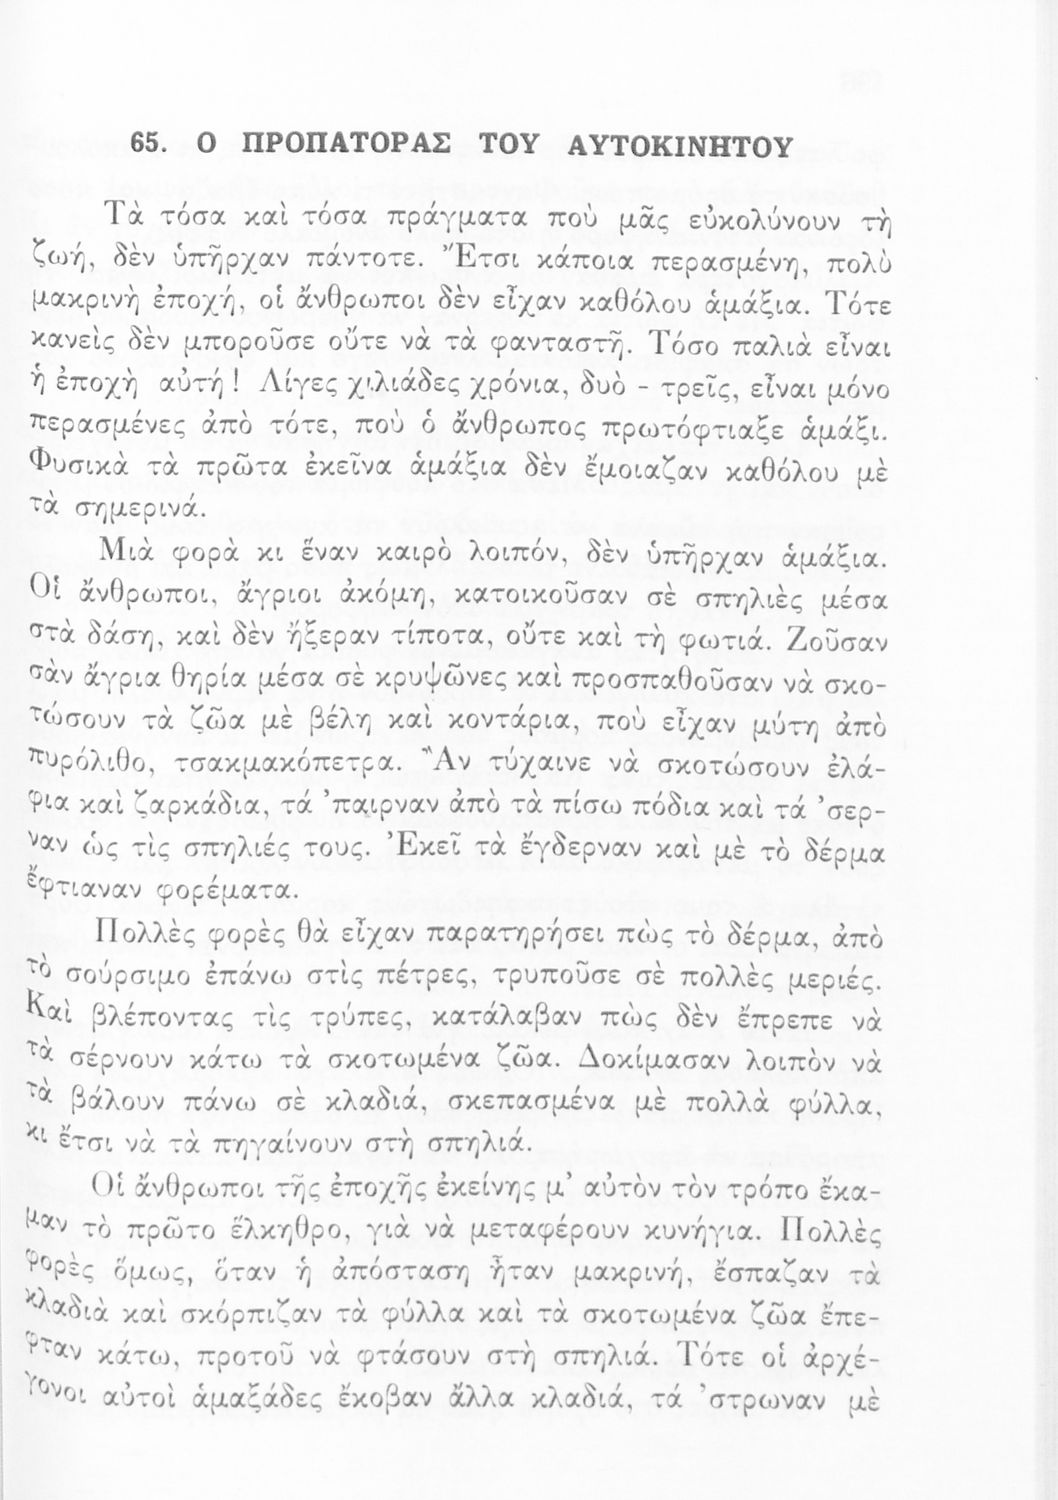 65. Ο ΠΡΟΠΑΤΟΡΑΣ ΤΟΥ ΑΥΤΟΚΙΝΗΤΟΥ
Τὰ τόσα καὶ τόσα πράγματα ποὺ μᾶς εὐκολύνουν τὴ
ζωή, δὲν ὑπῆρχαν πάντοτε. Ἔτσι κάποια περασμένη, πολὺ
μακρινὴ ἐποχή, οἱ ἄνθρωποι δὲν εἶχαν καθόλου ἁμάξια. Τότε
κανεὶς δὲν μποροῦσε οὔτε νὰ τὰ φανταστῆ. Τόσο παλιὰ εἶναι
ἡ ἐποχὴ αὐτή! Λίγες χιλιάδες χρόνια, δυὸ - τρεῖς, εἶναι μόνο
περασμένες ἀπὸ τότε, ποὺ ὁ ἄνθρωπος πρωτόφτιαξε ἁμάξι.
Φυσικὰ τὰ πρῶτα ἐκεῖνα ἁμάξια δὲν ἔμοιαζαν καθόλου μὲ
τὰ σημερινά.
Μιὰ φορὰ κι ἕναν καιρὸ λοιπόν, δὲν ὑπῆρχαν ἁμάξια.
Οἱ ἄνθρωποι, ἄγριοι ἀκόμη, κατοικοῦσαν σὲ σπηλιὲς μέσα
στὰ δάση, καὶ δὲν ἤξεραν τίποτα, οὔτε καὶ τὴ φωτιά. Ζοῦσαν
σὰν ἄγρια θηρία μέσα σὲ κρυψῶνες καὶ προσπαθοῦσαν νὰ σκο-
τώσουν τὰ ζῶα μὲ βέλη καὶ κοντάρια, ποὺ εἶχαν μύτη ἀπὸ
πυρόλιθο, τσακμακόπετρα. Ἂν τύχαινε νὰ σκοτώσουν ἐλά-
φια καὶ ζαρκάδια, τά ’παιρναν ἀπὸ τὰ πίσω πόδια καὶ τά ’σερ-
ναν ὡς τὶς σπηλιές τους. Ἐκεῖ τὰ ἔγδερναν καὶ μὲ τὸ δέρμα
ἔφτιαναν φορέματα.
Πολλὲς φορὲς θὰ εἶχαν παρατηρήσει πὼς τὸ δέρμα, ἀπὸ
τὸ σούρσιμο ἐπάνω στὶς πέτρες, τρυποῦσε σὲ πολλὲς μεριές.
Καὶ βλέποντας τὶς τρύπες, κατάλαβαν πὼς δὲν ἔπρεπε νὰ
τὰ σέρνουν κάτω τὰ σκοτωμένα ζῶα. Δοκίμασαν λοιπὸν νὰ
τὰ βάλουν πάνω σὲ κλαδιά, σκεπασμένα μὲ πολλὰ φύλλα,
κι ἔτσι νὰ τὰ πηγαίνουν στὴ σπηλιά.
Οἱ ἄνθρωποι τῆς ἐποχῆς ἐκείνης μ’ αὐτὸν τὸν τρόπο ἔκα-
μαν τὸ πρῶτο ἕλκηθρο, γιὰ νὰ μεταφέρουν κυνήγια. Πολλὲς
φορὲς ὅμως, ὅταν ἡ ἀπόσταση ἦταν μακρινή, ἔσπαζαν τὰ
κλαδιὰ καὶ σκόρπιζαν τὰ φύλλα καὶ τὰ σκοτωμένα ζῶα ἔπε-
φταν κάτω, προτοῦ νὰ φτάσουν στὴ σπηλιά. Τότε οἱ ἀρχέ-
γονοι αὐτοὶ ἁμαξάδες ἔκοβαν ἄλλα κλαδιά, τά ’στρωναν μὲ